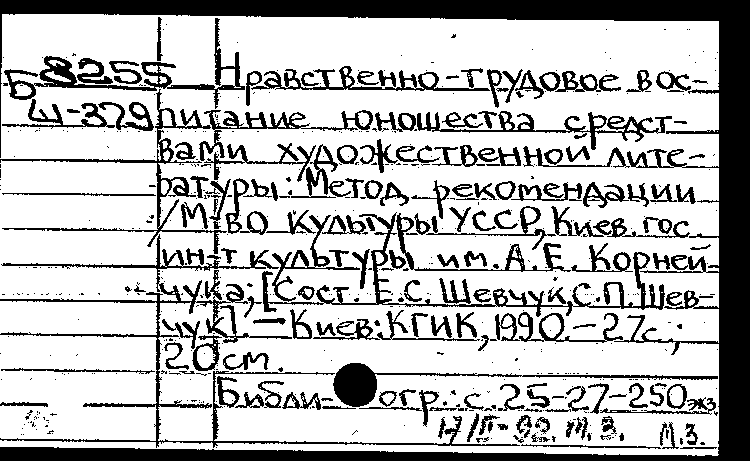 Б 8255
Ш-379
Нравственно-трудовое вос-
питание юношества средст-
вами художественной лите-
ратуры: Метод. рекомендации
/М-во культуры УССР, Киев. гос.
ин-т культуры им. А.Е. Корней-
чука; [Сост. Е.С. Шевчук, С.П. Шев-
чук]. — Киев: КГИК, 1990. – 27с.;
20см.
Библи- огр.: с. 25-27-250 экз.
17/II-92. М.З. М.З.